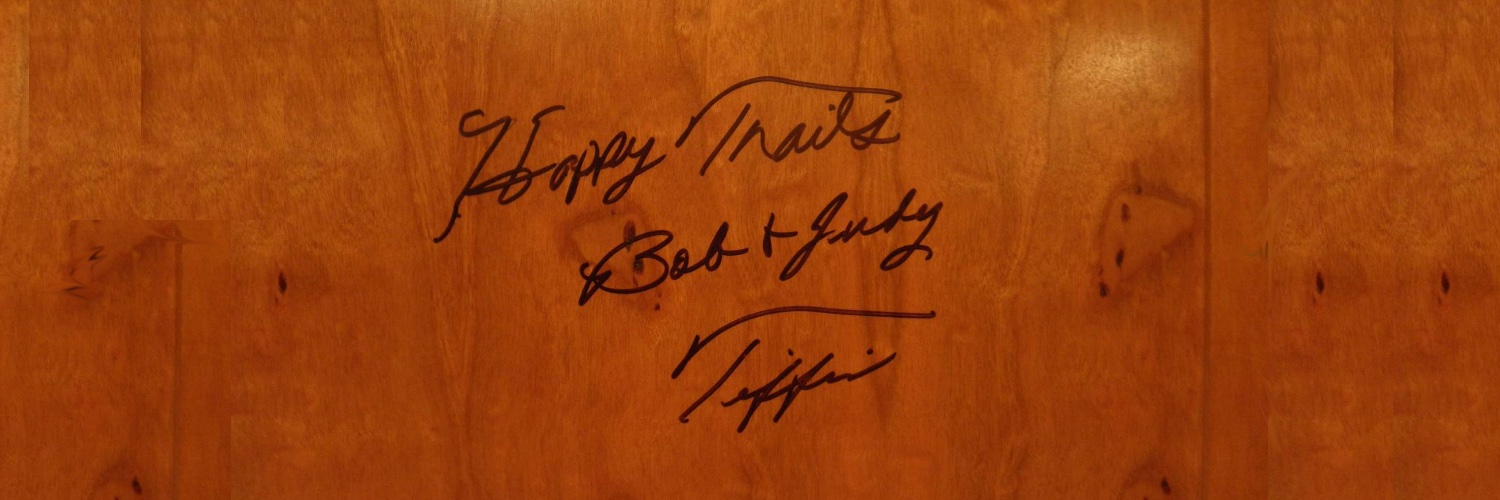 Happy Trails
Bob + Judy
Tiffin